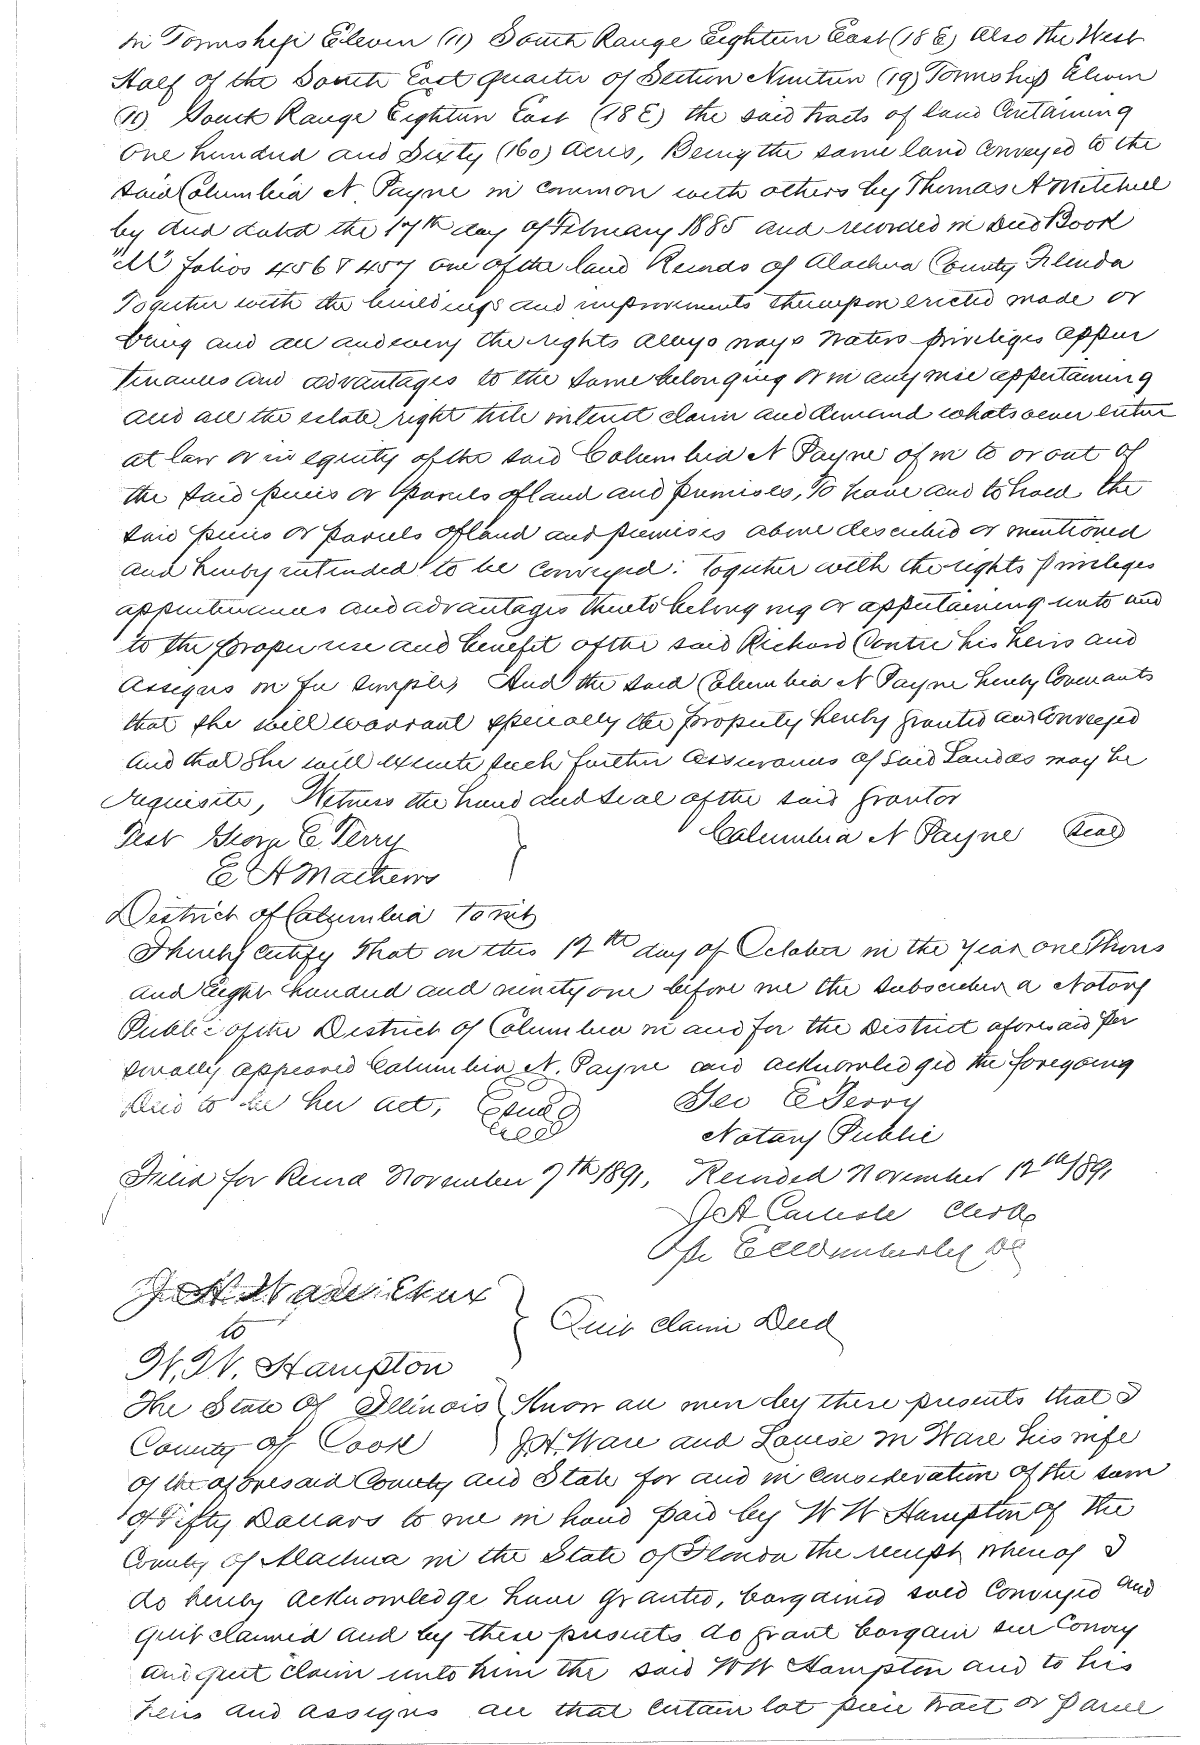 in Township Eleven (11) South Range Eighteen East (18 E) Also the West
Half of the South East quarter of Section Nineteen (19) Township Eleven
(11) South Range Eighteen East (18 E) the said tracts of land Containing
One hundred and Sixty (160) Acres, Being the same land Conveyed to the
said Columbia N. Payne in common with others by Thomas A Mitchell
by deed dated the 17th day of February 1885 and recorded in Deed Book
"M" folios 456 & 457 one of the land Records of Alachua County Florida
Together with the buildings and improvements thereupon erected made or
being and all and every the rights alleys ways waters privileges appur
tenances and advantages to the same belonging or in any wise appertaining
and all the estate, right title interest claim and demand whatsoever either
at law or in equity of the said Columbia N Payne of in to or out of
the said pieces or parcels of land and premises, To have and to hold the
said pieces or parcels of land and premises above described or mentioned
and hereby intended to be conveyed: Together with the rights privileges
appurtenances and advantages thereto belonging or appertaining unto and
to the proper use and benefit of the said Richard Contee his heirs and
assigns in fee simple, And the said Columbia N Payne hereby Covenants
that she will warrant specially the property hereby granted and Conveyed
and that she will execute such further assurances of said Land as may be
requisite, Witness the hand and seal of the said grantor
Test Geore E Terry } Columbia N Payne (Seal)
E A Mathews
District of Columbia to wit
I hereby certify that on this 12th day of October in the year one Thous
and Eight hundred and ninety one before me the subscriber a Notary
Public of the District of Columbia in and for the District aforesaid per
sonally appeared Columbia N. Payne and acknowledged the foregoing
deed to be her act, Geo E Terry
Notary Public
Filed for Record November 7th 1891, Recorded November 12th 1891
J A Carlisle Clerk
Per DC
to } Quit Claim Deed
W. W. Hampton
The State of Illinois } Know all men by these presents that I
County of Cook } J. H. Ware and Louise M Ware his wife
of the aforesaid County and State for and in consideration of the sum
of Fifty Dollars to me in hand paid by W W Hampton of the
County of Alachua in the State of Florida the receipt whereof I
do hereby acknowledge have granted, bargained sold Conveyed and
quit claimed and by these presents do grant bargain sell Convey
and quit claim unto him the said W W Hampton and to his
heirs and assigns all that certain lot piece tract or parcel